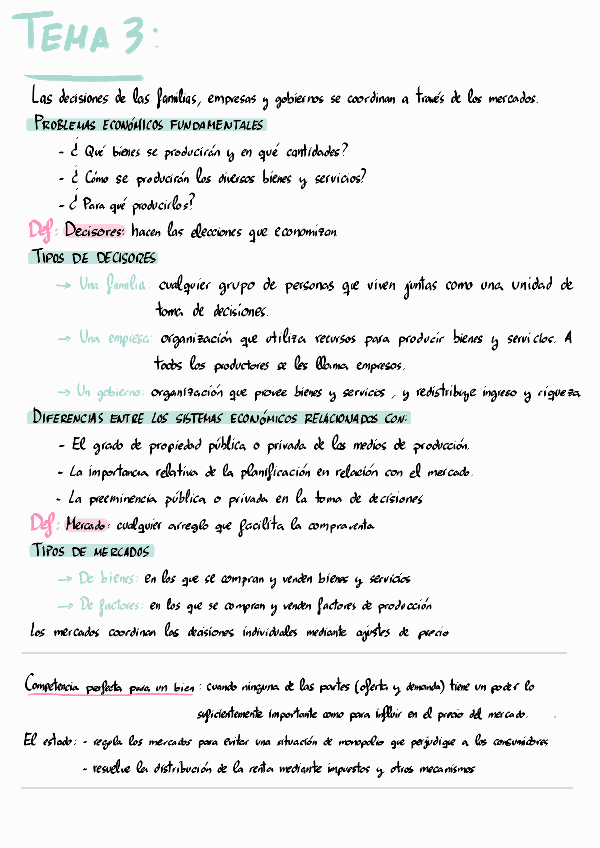 TEMA 3:
Las decisiones de las familias, empresas y gobiernos se coordinan a través de los mercados.
PROBLEMAS ECONÓMICOS FUNDAMENTALES
- ¿Qué bienes se producirán y en qué cantidades?
- ¿Cómo se producirán los diversos bienes y servicios?
- ¿Para qué producirlos?
Def: Decisores: hacen las elecciones que economizan
TIPOS DE DECISORES
→ Una familia: cualquier grupo de personas que viven juntas como una unidad de
toma de decisiones.
→ Una empresa: organización que utiliza recursos para producir bienes y servicios. A
todos los productores se les llama empresos.
→ Un gobierno: organización que provee bienes y servicios, y redistribuye ingreso y riqueza
DIFERENCIAS ENTRE LOS SISTEMAS ECONÓMICOS RELACIONADOS CON:
- El grado de propiedad pública o privada de los medios de producción.
- La importancia relativa de la planificación en relación con el mercado.
- La preeminencia pública o privada en la toma de decisiones
Def: Mercado: cualquier arreglo que facilita la compraventa
TIPOS DE MERCADOS
→ De bienes: en los que se compran y venden bienes y servicios
→ De factores: en los que se compran y venden factores de producción
Los mercados coordinan las decisiones individuales mediante ajustes de precio
Competencia perfecta para un bien: cuando ninguna de las partes (oferta y demanda) tiene un poder lo
suficientemente importante como para influir en el precio del mercado.
El estado: - regula los mercados para evitar una situación de monopolio que perjudique a los consumidores
- resuelve la distribución de la renta mediante impuestos y otros mecanismos